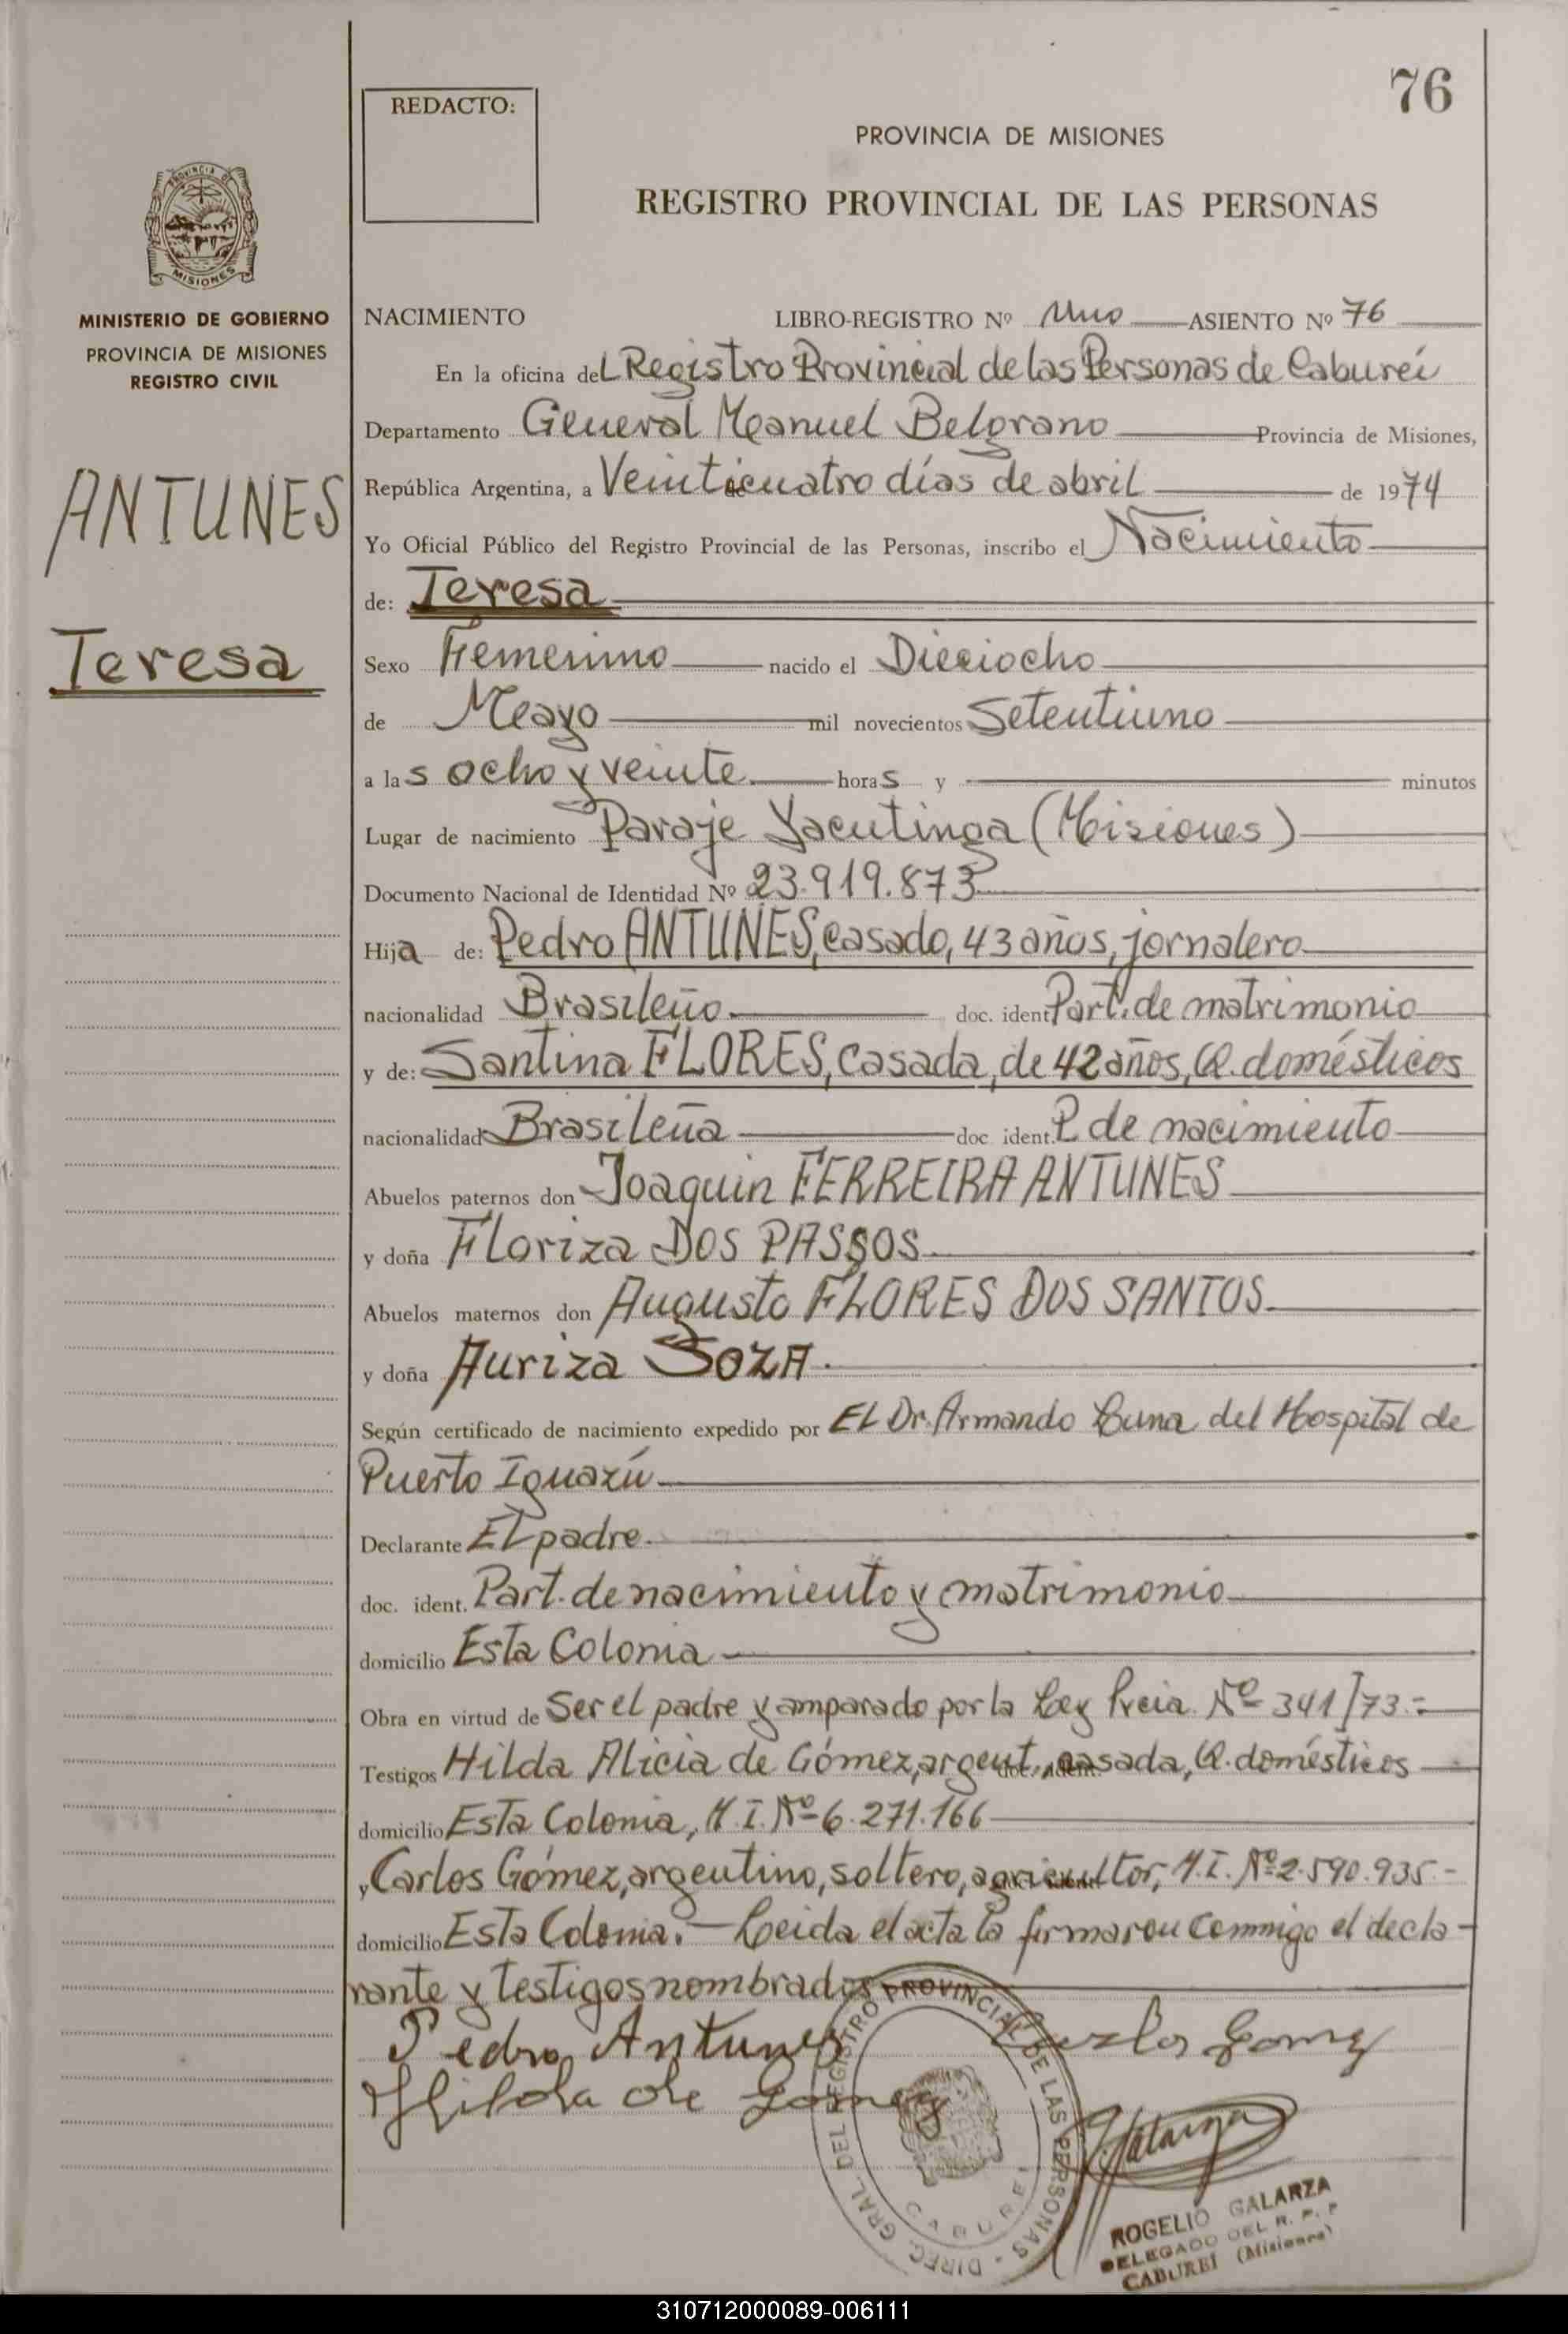 76
REDACTO:
PROVINCIA DE MISIONES
REGISTRO PROVINCIAL DE LAS PERSONAS
PROVINCIA DE
MISIONES
MINISTERIO DE GOBIERNO
PROVINCIA DE MISIONES
REGISTRO CIVIL
ANTUNES
Teresa
NACIMIENTO LIBRO-REGISTRO Nº Uno ASIENTO Nº 76
En la oficina deL Registro Provincial de las Personas de Cabureí
Departamento General Manuel Belgrano Provincia de Misiones,
República Argentina, a Veinticuatro días de abril de 1974
Yo Oficial Público del Registro Provincial de las Personas, inscribo el Nacimiento
de: Teresa
Sexo Femenino nacido el Dieciocho
de Mayo mil novecientos Setentiuno
a las ocho y veinte horas y minutos
Lugar de nacimiento Paraje Yacutinga (Misiones)
Documento Nacional de Identidad Nº 23.919.873
Hija de: Pedro ANTUNES, casado, 43 años, jornalero
nacionalidad Brasileño doc. ident. Part. de matrimonio
y de: Santina FLORES, casada, de 42 años, Q. domésticos
nacionalidad Brasileña doc ident. P. de nacimiento
Abuelos paternos don Joaquin FERREIRA ANTUNES
y doña Floriza DOS PASSOS
Abuelos maternos don Augusto FLORES DOS SANTOS
y doña Auriza SOZA.
Según certificado de nacimiento expedido por El Dr. Armando Luna del Hospital de
Puerto Iguazú
Declarante El padre.
doc. ident. Part. de nacimiento y matrimonio
domicilio Esta Colonia
Obra en virtud de Ser el padre y amparado por la Ley Pvcia. Nº 341/73.=
Testigos Hilda Alicia de Gómez, argent., casada, Q. domésticos
domicilio Esta Colonia, M.I. Nº 6.271.166
y Carlos Gómez, argentino, soltero, agricultor, M.I. Nº 2.590.935.-
domicilio Esta Colonia.- Leida el acta la firmaron conmigo el decla-
rante y testigos nombrados
Pedro Antunes Carlos Gomez
Hilda de Gomez
DIREC. GRAL. DEL REGISTRO PROVINCIAL DE LAS PERSONAS
CABUREI
ROGELIO GALARZA
DELEGADO DEL R. P. P
CABUREI (Misiones)
310712000089-006111